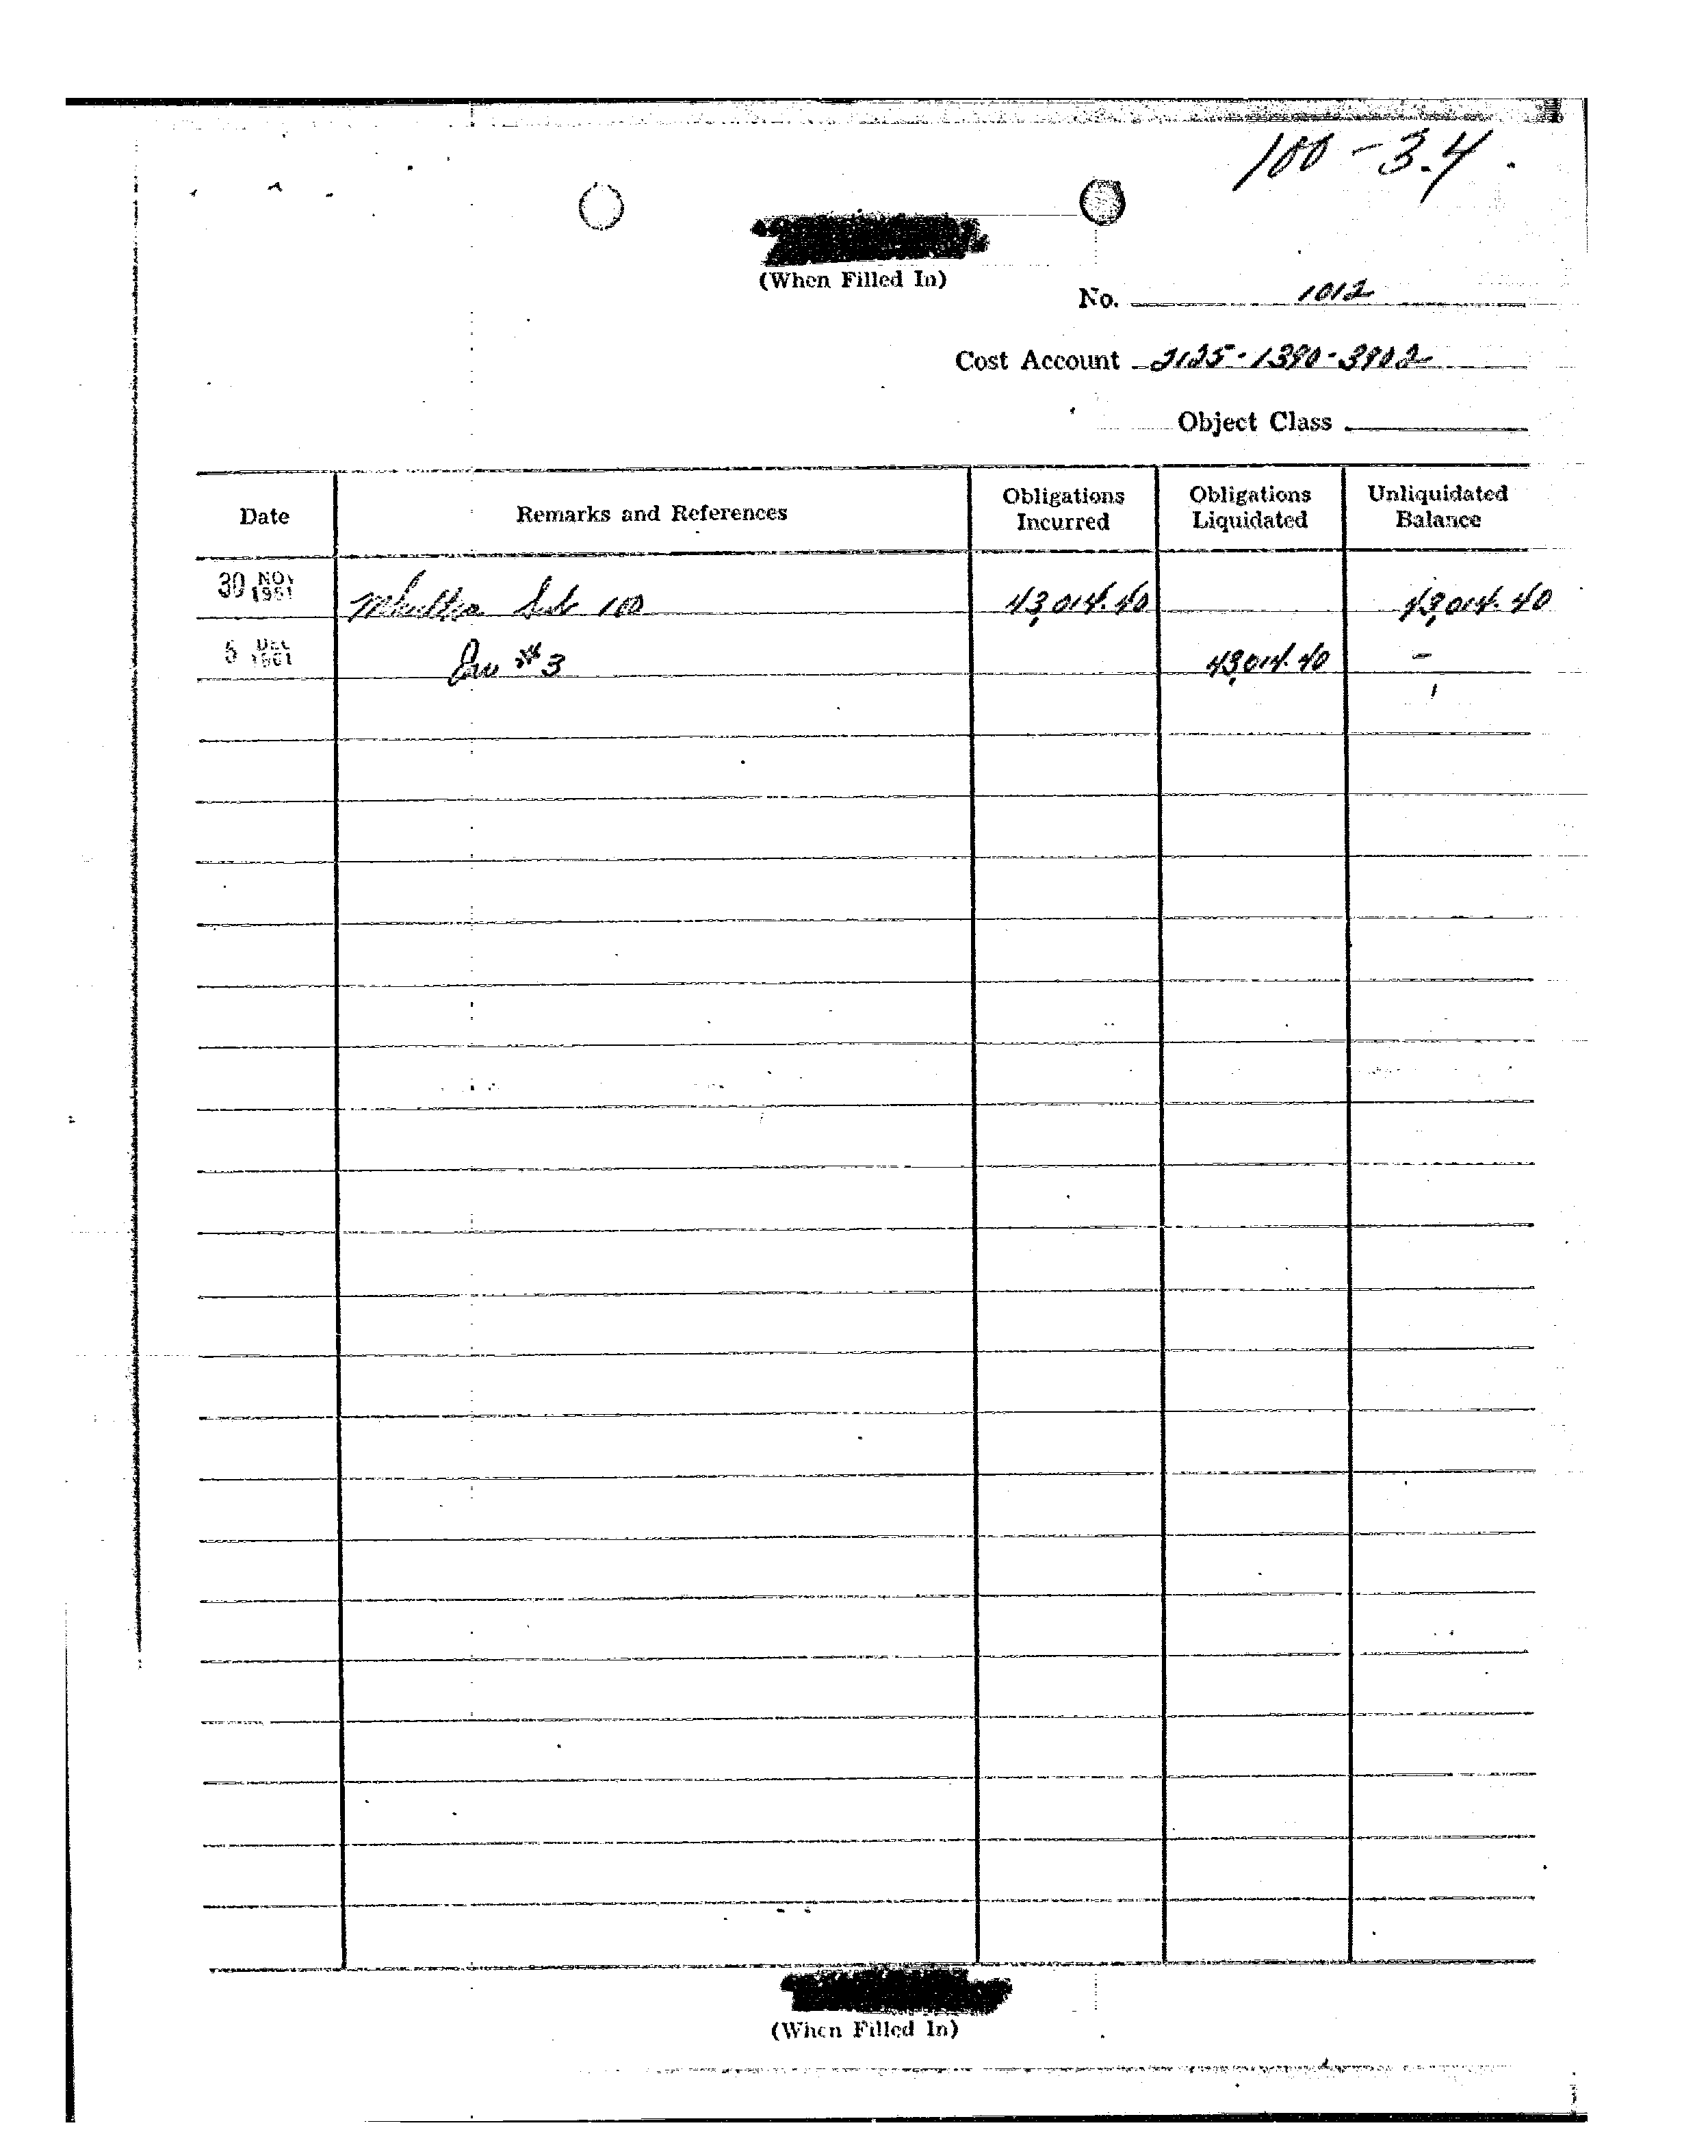 100-3.4
(When Filled In)
No. 1012
Cost Account 2125-1390-3902
Object Class
Date
Remarks and References
Obligations Incurred
Obligations Liquidated
Unliquidated Balance
30 NOV 1961
Mkultra Sub 100
43,014.40
43,014.40
5 DEC 1961
Inv #3
43,014.40
-
(When Filled In)